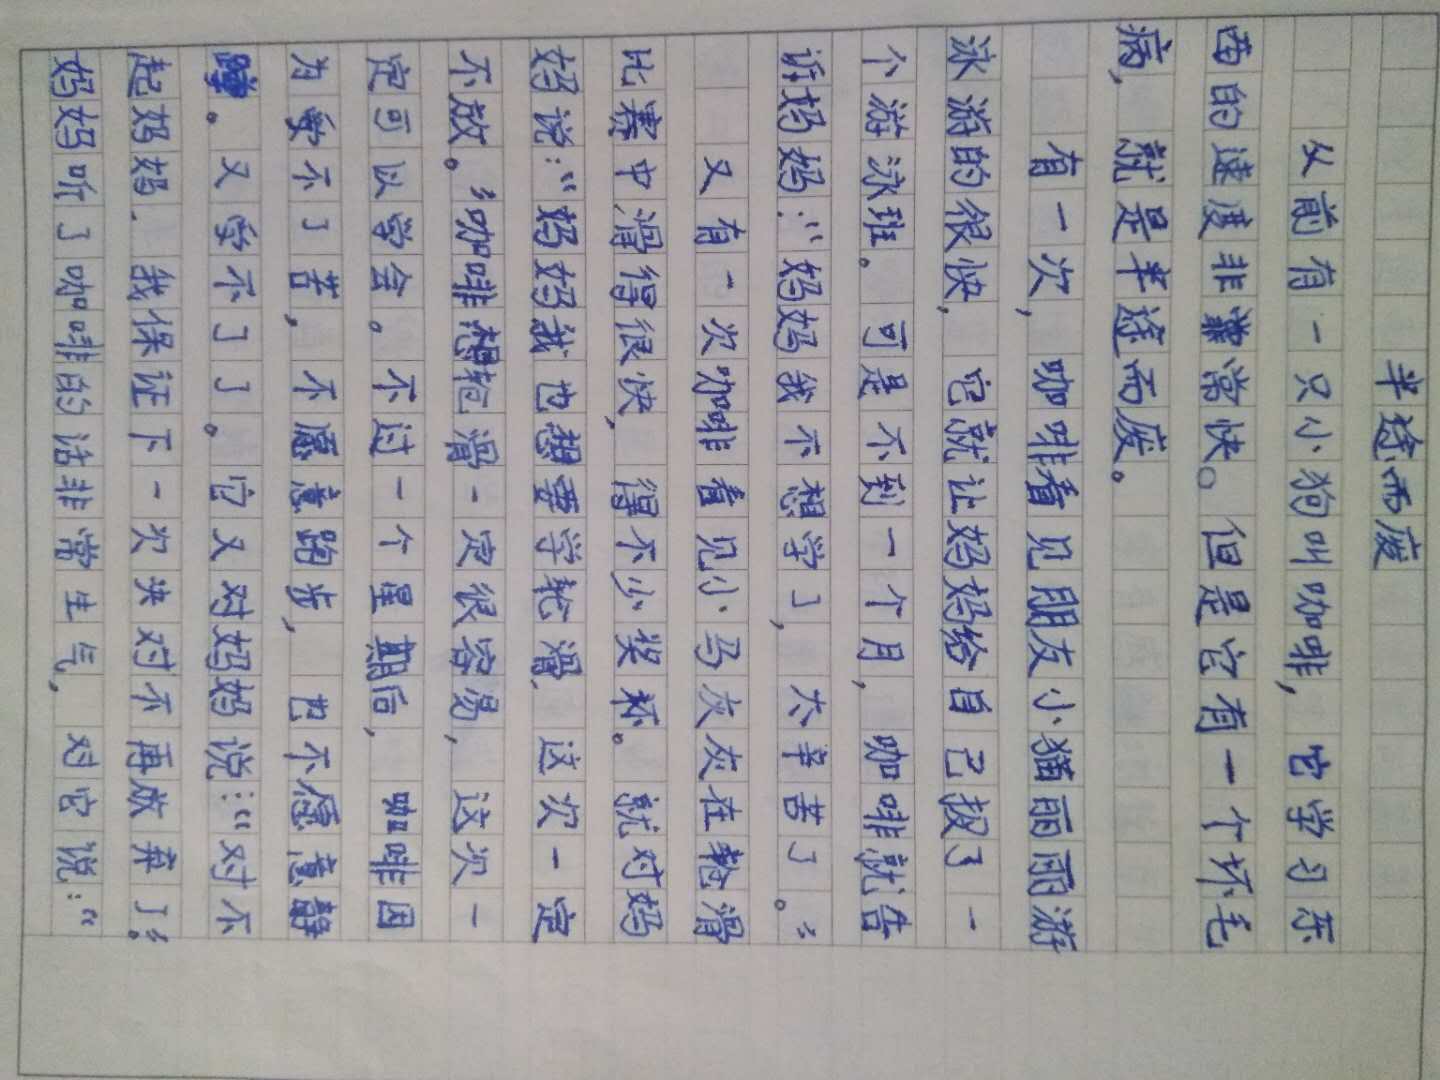 半途而废
从前有一只小狗叫咖啡，它学习东
西的速度非常快。但是它有一个坏毛
病，就是半途而废。
有一次，咖啡看见朋友小猫丽丽游
泳游的很快，它就让妈妈给自己报了一
个游泳班。可是不到一个月，咖啡就告
诉妈妈：“妈妈我不想学了，太辛苦了。”
又有一次咖啡看见小马灰灰在轮滑
比赛中滑得很快，得不少奖杯。就对妈
妈说：“妈妈我也想要学轮滑，这次一定
不放。”咖啡想轮滑一定很容易，这次一
定可以学会。不过一个星期后，咖啡因
为受不了苦，不愿意跑步，也不愿意静
蹲。又学不了了。它又对妈妈说：“对不
起妈妈．我保证下一次决对不再放弃了。”
妈妈听了咖啡的话非常生气，对它说：“